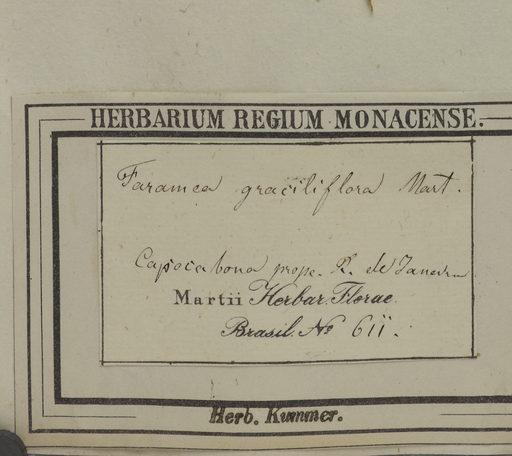 HERBARIUM REGIUM MONACENSE.
Faramea graciliflora Mart.
Capocabona prope. R. de Janeiro
Martii Herbar. Florae
Brasil. No 611.
Herb. Kummer.